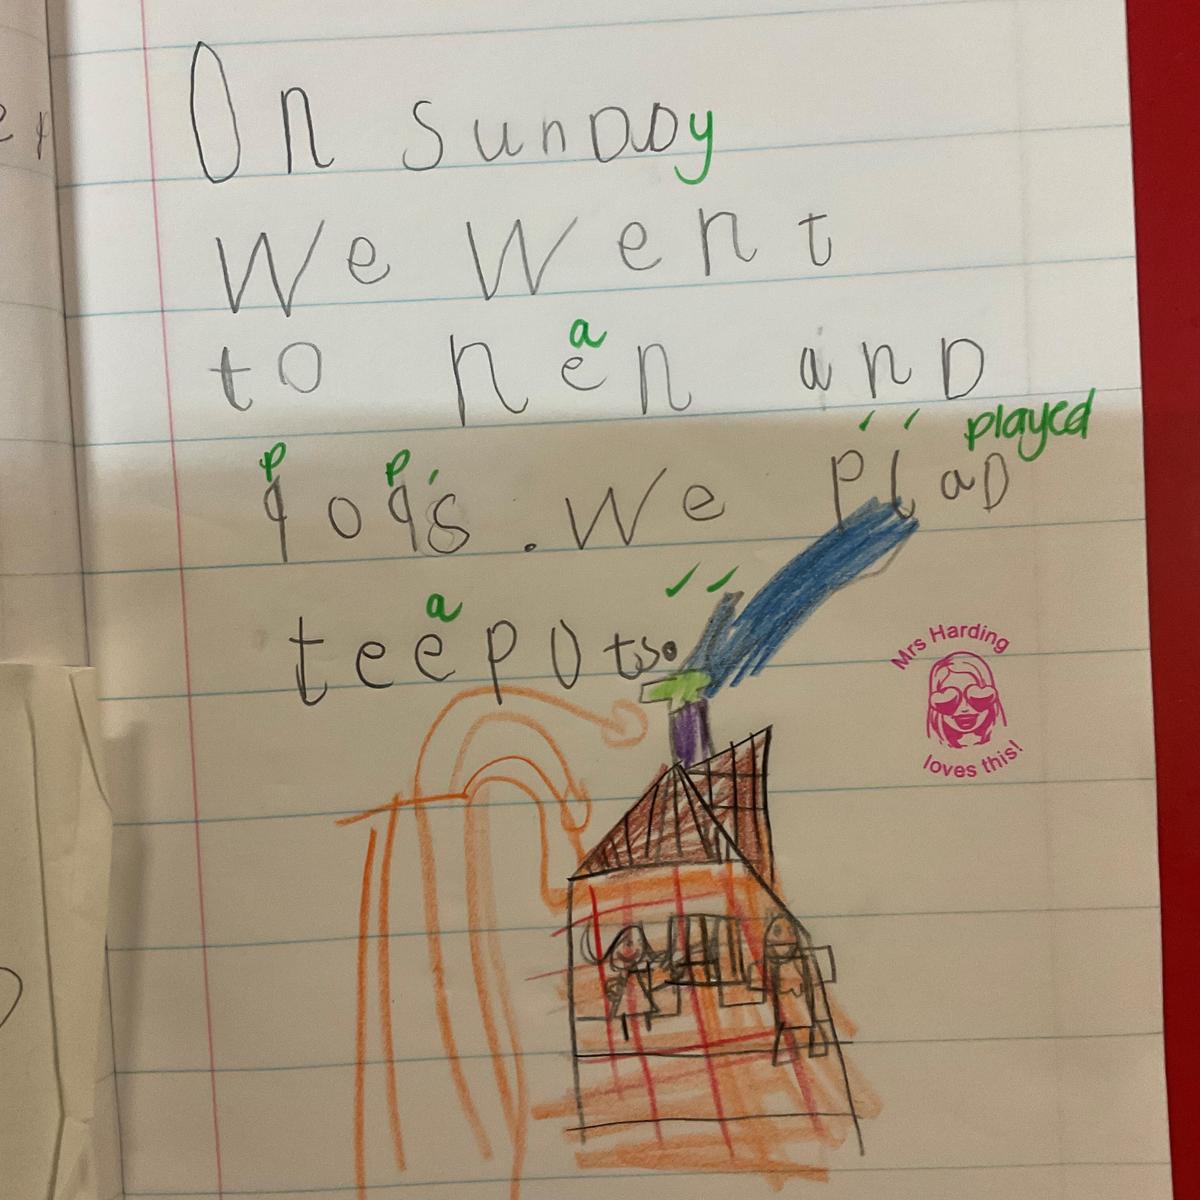 On sunDay
We Went
a
to nen anD
played
p p '
qoq's . We plaD
a
teepots.
Mrs Harding
loves this!